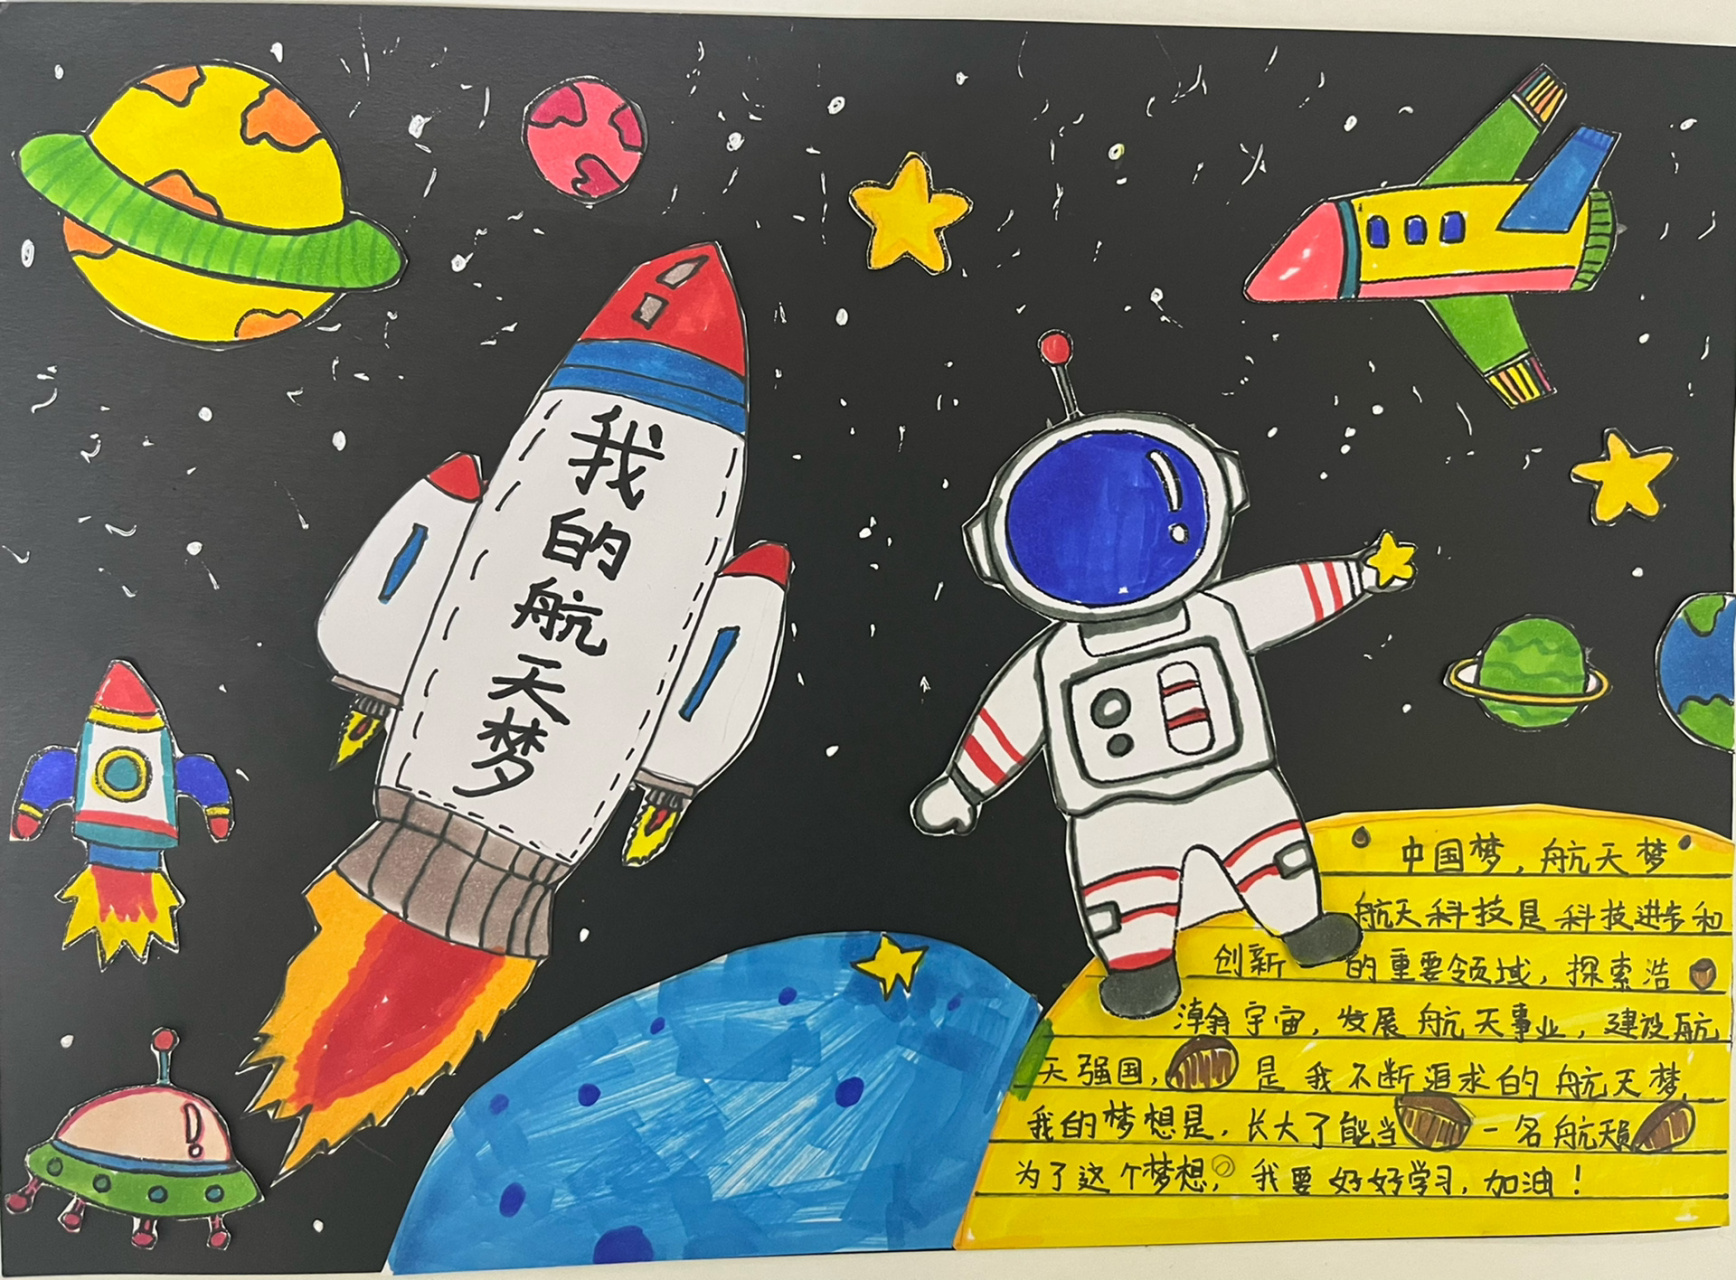 我的航天梦
中国梦，航天梦
航天科技是科技进步和
创新的重要领域，探索浩
瀚宇宙，发展航天事业，建设航
天强国，是我不断追求的航天梦，
我的梦想是，长大了能当一名航天员
为了这个梦想，我要好好学习，加油！